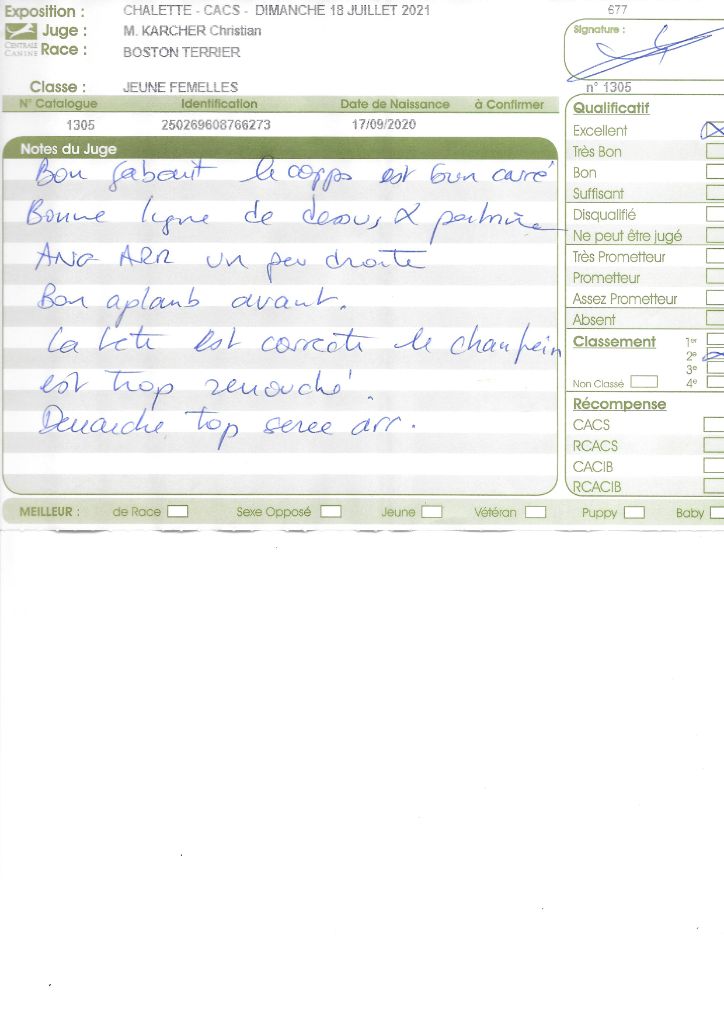 Exposition : CHALETTE - CACS - DIMANCHE 18 JUILLET 2021 677
CENTRALE CANINE
Juge : M. KARCHER Christian
Race : BOSTON TERRIER
Signature :
Classe : JEUNE FEMELLES n° 1305
N° Catalogue Identification Date de Naissance à Confirmer
1305 250269608766273 17/09/2020
Notes du Juge
Bon gabarit le corps est bien carré
Bonne ligne de dessus & poitrine
ANG ARR un peu droite
Bon aplomb avant.
La tête est correcte le chanfrein
est trop remouché.
Démarche trop serée arr.
Qualificatif
Excellent
Très Bon
Bon
Suffisant
Disqualifié
Ne peut être jugé
Très Prometteur
Prometteur
Assez Prometteur
Absent
Classement 1er
2e
3e
Non Classé 4e
Récompense
CACS
RCACS
CACIB
RCACIB
MEILLEUR : de Race Sexe Opposé Jeune Vétéran Puppy Baby